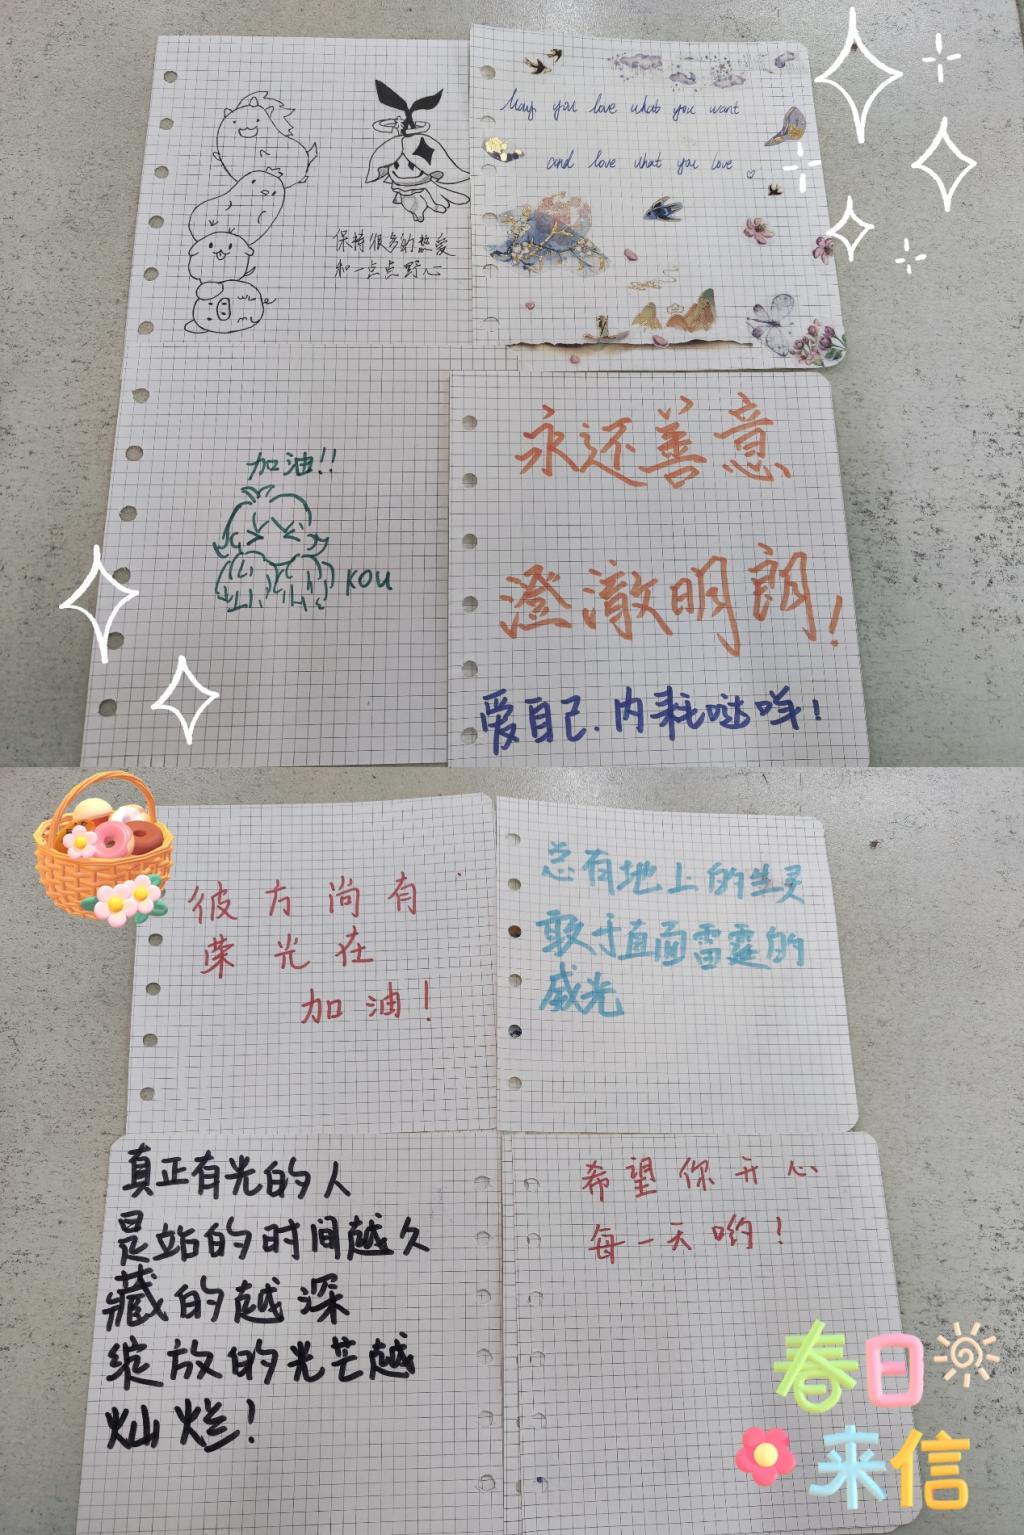 保持很多的热爱
和一点点野心
May you love what you want
and love what you love
加油!!
KOU
永还善意
澄澈明朗!
爱自己.内耗哒咩!
彼方尚有
荣光在
加油!
总有地上的生灵
敢于直面雷霆的
威光
真正有光的人
是站的时间越久
藏的越深
绽放的光芒越
灿烂!
希望你开心
每一天哟!
春日
来信